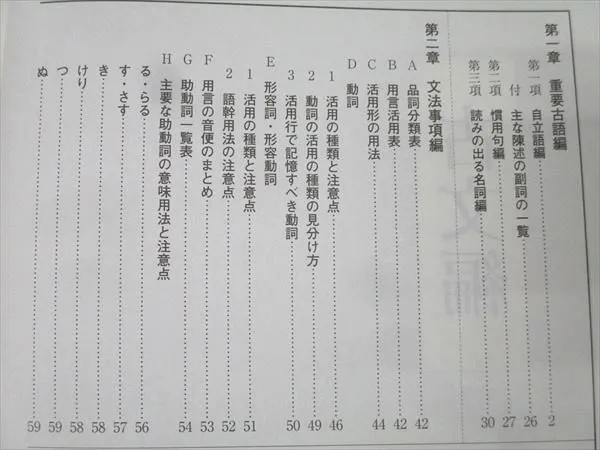 第一章 重要古語編
第一項 自立語編……2
付 主な陳述の副詞の一覧……26
第二項 慣用句編……27
第三項 読みの出る名詞編……30
第二章 文法事項編
A 品詞分類表……42
B 用言活用表……42
C 活用形の用法……44
D 動詞
1 活用の種類と注意点……46
2 動詞の活用の種類の見分け方……49
3 活用行で記憶すべき動詞……50
E 形容詞・形容動詞
1 活用の種類と注意点……51
2 語幹用法の注意点……52
F 用言の音便のまとめ……53
G 助動詞一覧表……54
H 主要な助動詞の意味用法と注意点
る・らる……56
す・さす……58
き……58
けり……58
つ……59
ぬ……59